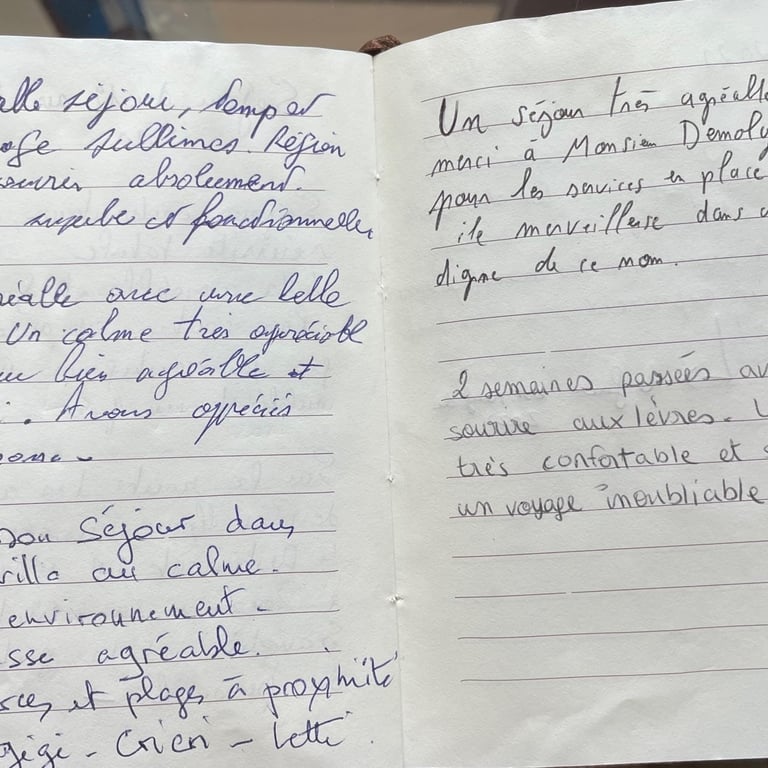 séjour, temps et
sublimes. Région
absolument.
superbe et fonctionnelle,
avec une belle
Un calme très appréciable
bien agréable et
. Avons appréciés
bon séjour dans
villa au calme.
environnement.
agréable.
et plages à proximité
gigi - Cricri - Letti.
Un séjour très agréable
merci à Monsieur Demoly
pour les services en place
île merveilleuse dans
digne de ce nom.
2 semaines passées
sourire aux lèvres.
très confortable et
un voyage inoubliable